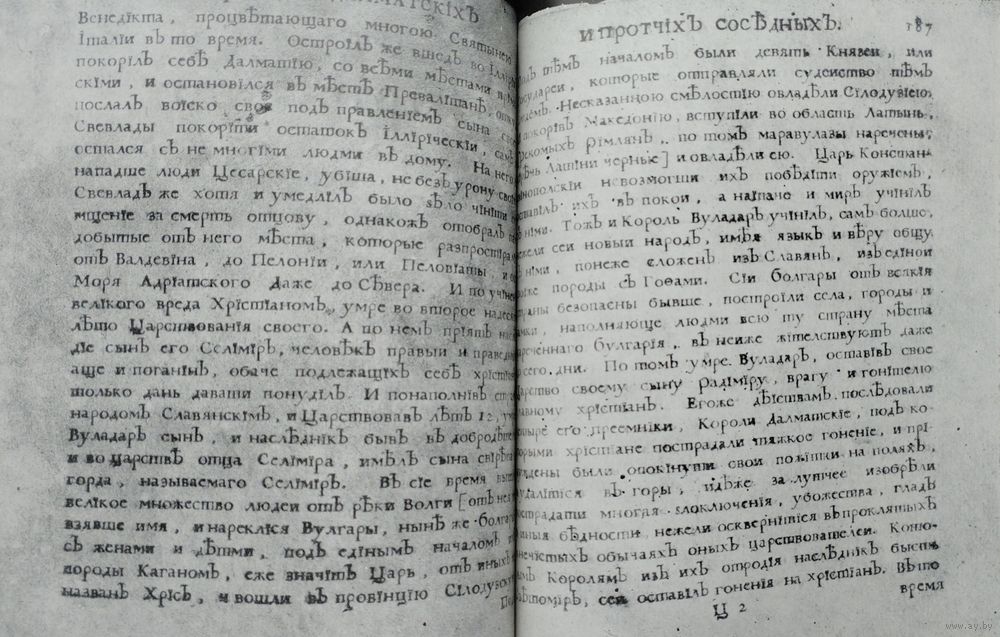 ДАЛМАТСКІХЪ
Венедікта, процвѣтающаго многою Святынею
Італіи въ то время. Остроілъ же вшедъ во Іллір
покорілъ себѣ Далматію, со всѣми мѣстами
скіми, и остановілся въ мѣстѣ Превалітанѣ,
послалъ воіско свое подъ правленіемъ сына
Свевлады покоріти остатокъ Іллірическіи, самъ
остался съ не многіми людми въ дому. На него
нападше люди Цесарскіе, убіша, не безъ урону
Свевладъ же хотя и умедлілъ было ѕѣло чініти
мщеніе за смерть отцову, однакожъ отобралъ
добытые отъ него мѣста, которые разпростіра
отъ Валдевіна, до Пелоніи, или Пеловіаты, и
Моря Адріатского даже до Сѣвера. И по учіне
велікого вреда Хрістіаномъ, умре во второе надеся
лѣто Царствованія своего. А по немъ пріятъ
діе сынъ его Селіміръ, человѣкъ правыи и праведн
аще и поганінъ, обаче подлежащіхъ себѣ хрістіан
толко дань даваті понуділъ. И понаполнівъ стр
народомъ Славянскімъ, и Царствовавъ лѣтъ 12,
Вуладаръ сынъ, и наслѣднікъ бывъ въ добродѣте
и во царствѣ отца Селіміра, имѣлъ сына свірѣпа
горда, называемаго Селіміръ. Въ сіе время
велікое множество людеи отъ рѣки Волги [отъ нея
взявше имя, и нареклісяѣ Вулгары, нынѣ же болгар
съ женами и дѣтми, подъ едінымъ началомъ
породы Каганомъ, еже значітъ Царь, отъ иныхъ
названъ Хрісъ, и вошли въ провінцію Сілодузск
И ПРОТЧІХЪ СОСѢДНЫХЪ.
187
тѣмъ началомъ были девять Князеи, или
государеи, которые отправляли судеиство тѣмъ
Несказанною смѣлостію овладѣли Сілодузіею,
покорівъ Македонію, вступіли во область Латынь,
Рімлянъ, по томъ маравулазы наречены,
Латіни черные] и овладѣли ею. Царь Констан
тінополскіи невозмогши ихъ побѣдіти оружіемъ,
оставілъ ихъ въ покои, а наіпаче и миръ учінілъ
съ німи. Тожъ и Король Вуладаръ учінілъ, самъ болше,
нежели сеи новыи народъ, имѣя языкъ и вѣру общу
съ німи, понеже сложенъ изъ Славянъ, изъ едіной
породы съ Гоѳами. Сіи болгары отъ всякія
страны безопасны бывше, построіли села, городы и
замки, наполняюще людми всю ту страну мѣста
нареченнаго булгарія, въ неиже жітелствуютъ даже
до сего дни. По томъ умре Вуладаръ, оставівъ свое
царство своему сыну Радіміру, врагу и гонітелю
главному хрістіанъ. Егоже дѣіствамъ послѣдовали
которые его преемніки, Короли Далматскіе, подъ ко-
торыми хрістіане пострадали тяжкое гоненіе, и прі-
нуждены были опокінути свои пожітки на поляхъ,
удалітіся въ горы, идѣже за лутчее изобрѣли
пострадати многая злоключенія, убожества, гладъ
иныя бѣдности нежели осквернітіся въ проклятыхъ
нечістыхъ обычаяхъ оныхъ царствователеи. Кото-
рымъ Королямъ изъ ихъ отродія наслѣднікъ бысть
Звѣтоміръ, сеи оставілъ гоненія на хрістіанъ. Въ то
время
Ц 2
www.ay.by